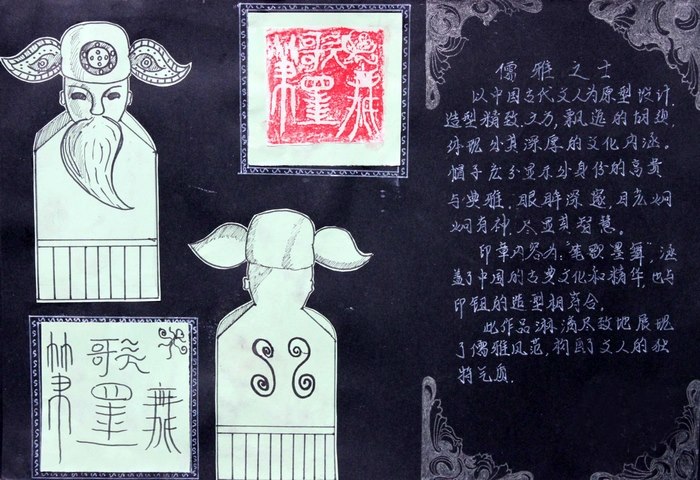 儒雅之士
以中国古代文人为原型设计,
造型精致,大方,飘逸的胡须
体现出其深厚的文化内涵。
帽子充分显示出身份的高贵
与典雅,眼眸深邃,目光炯
炯有神,尽显其智慧。
印章内容为,"笔歌墨舞",涵
盖了中国的古典文化和精华,也与
印钮的造型相符合。
此作品淋漓尽致地展现
了儒雅风范,构画了文人的独
特气质.
筆歌墨舞
筆歌墨舞